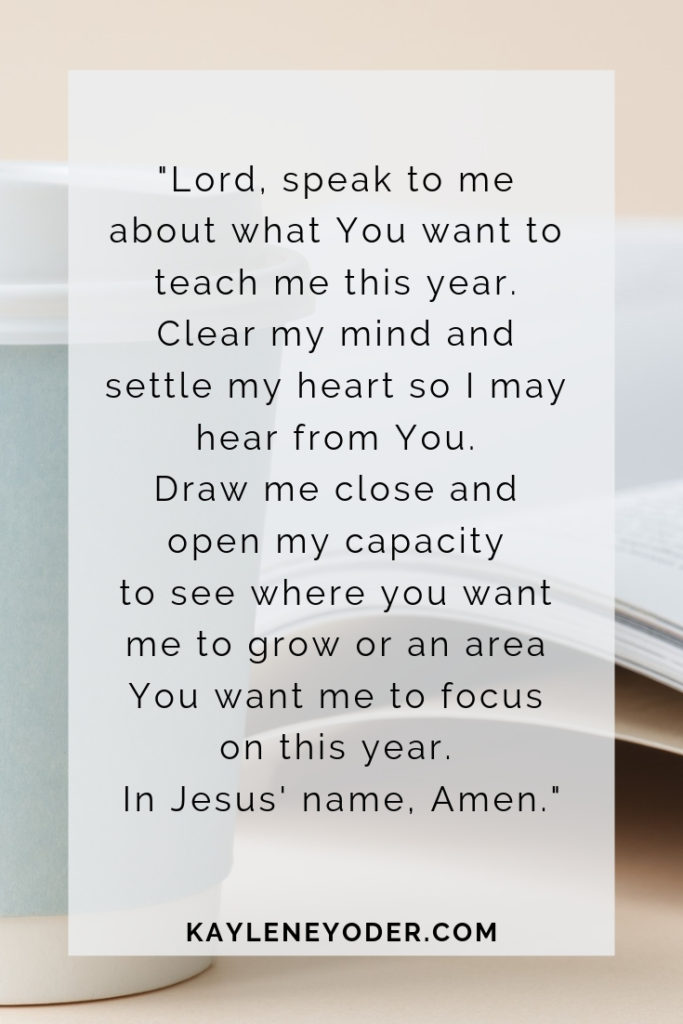 "Lord, speak to me
about what You want to
teach me this year.
Clear my mind and
settle my heart so I may
hear from You.
Draw me close and
open my capacity
to see where you want
me to grow or an area
You want me to focus
on this year.
In Jesus' name, Amen."
KAYLENEYODER.COM